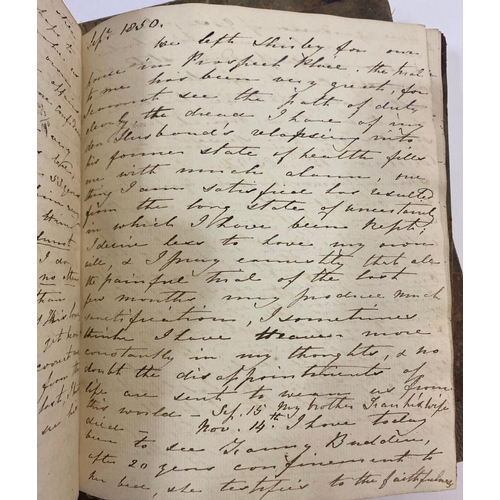 Sept. 1850.
We left Shirley for our
house in Prospect Place. the trial
to me has been very great, for
I cannot see the path of duty
clearly, the dread I have of my
dear Husband's relapsing into
his former state of health fills
me with much alarm, one
thing I am satisfied has resulted
from the long state of uncertainty
in which I have been kept,
I desire less to have my own
will, & I pray earnestly that all
the painful trial of the last
few months may produce much
sanctification, I sometimes
think I have Heaven more
constantly in my thoughts, & no
doubt the disappointments of
life are sent to wean us from
this world - Sep. 15th My brother Frank's wife
died - Nov. 14th I have today
been to see Fanny Budden,
after 20 years confinement to
her bed, she testifies to the faithfulness